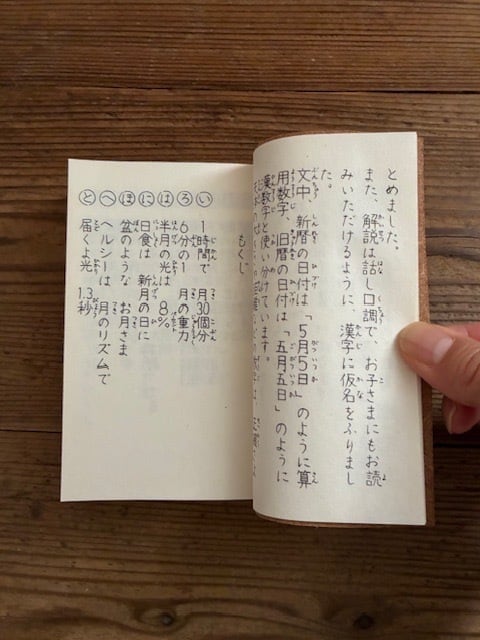 とめました。
また、解説は話し口調で、お子さまにもお読
みいただけるように、漢字に仮名をふりまし
た。
文中、新暦の日付は「5月5日」のように算
用数字、旧暦の日付は「五月五日」のように
漢数字と使い分けています。
もくじ
い 1時間で 月30個分
ろ 6分の1 月の重力
は 半月の光は 8%
に 日食は 新月の日に
ほ 盆のような お月さま
へ ヘルシーは 月のリズムで
と 届くよ光 1.3秒